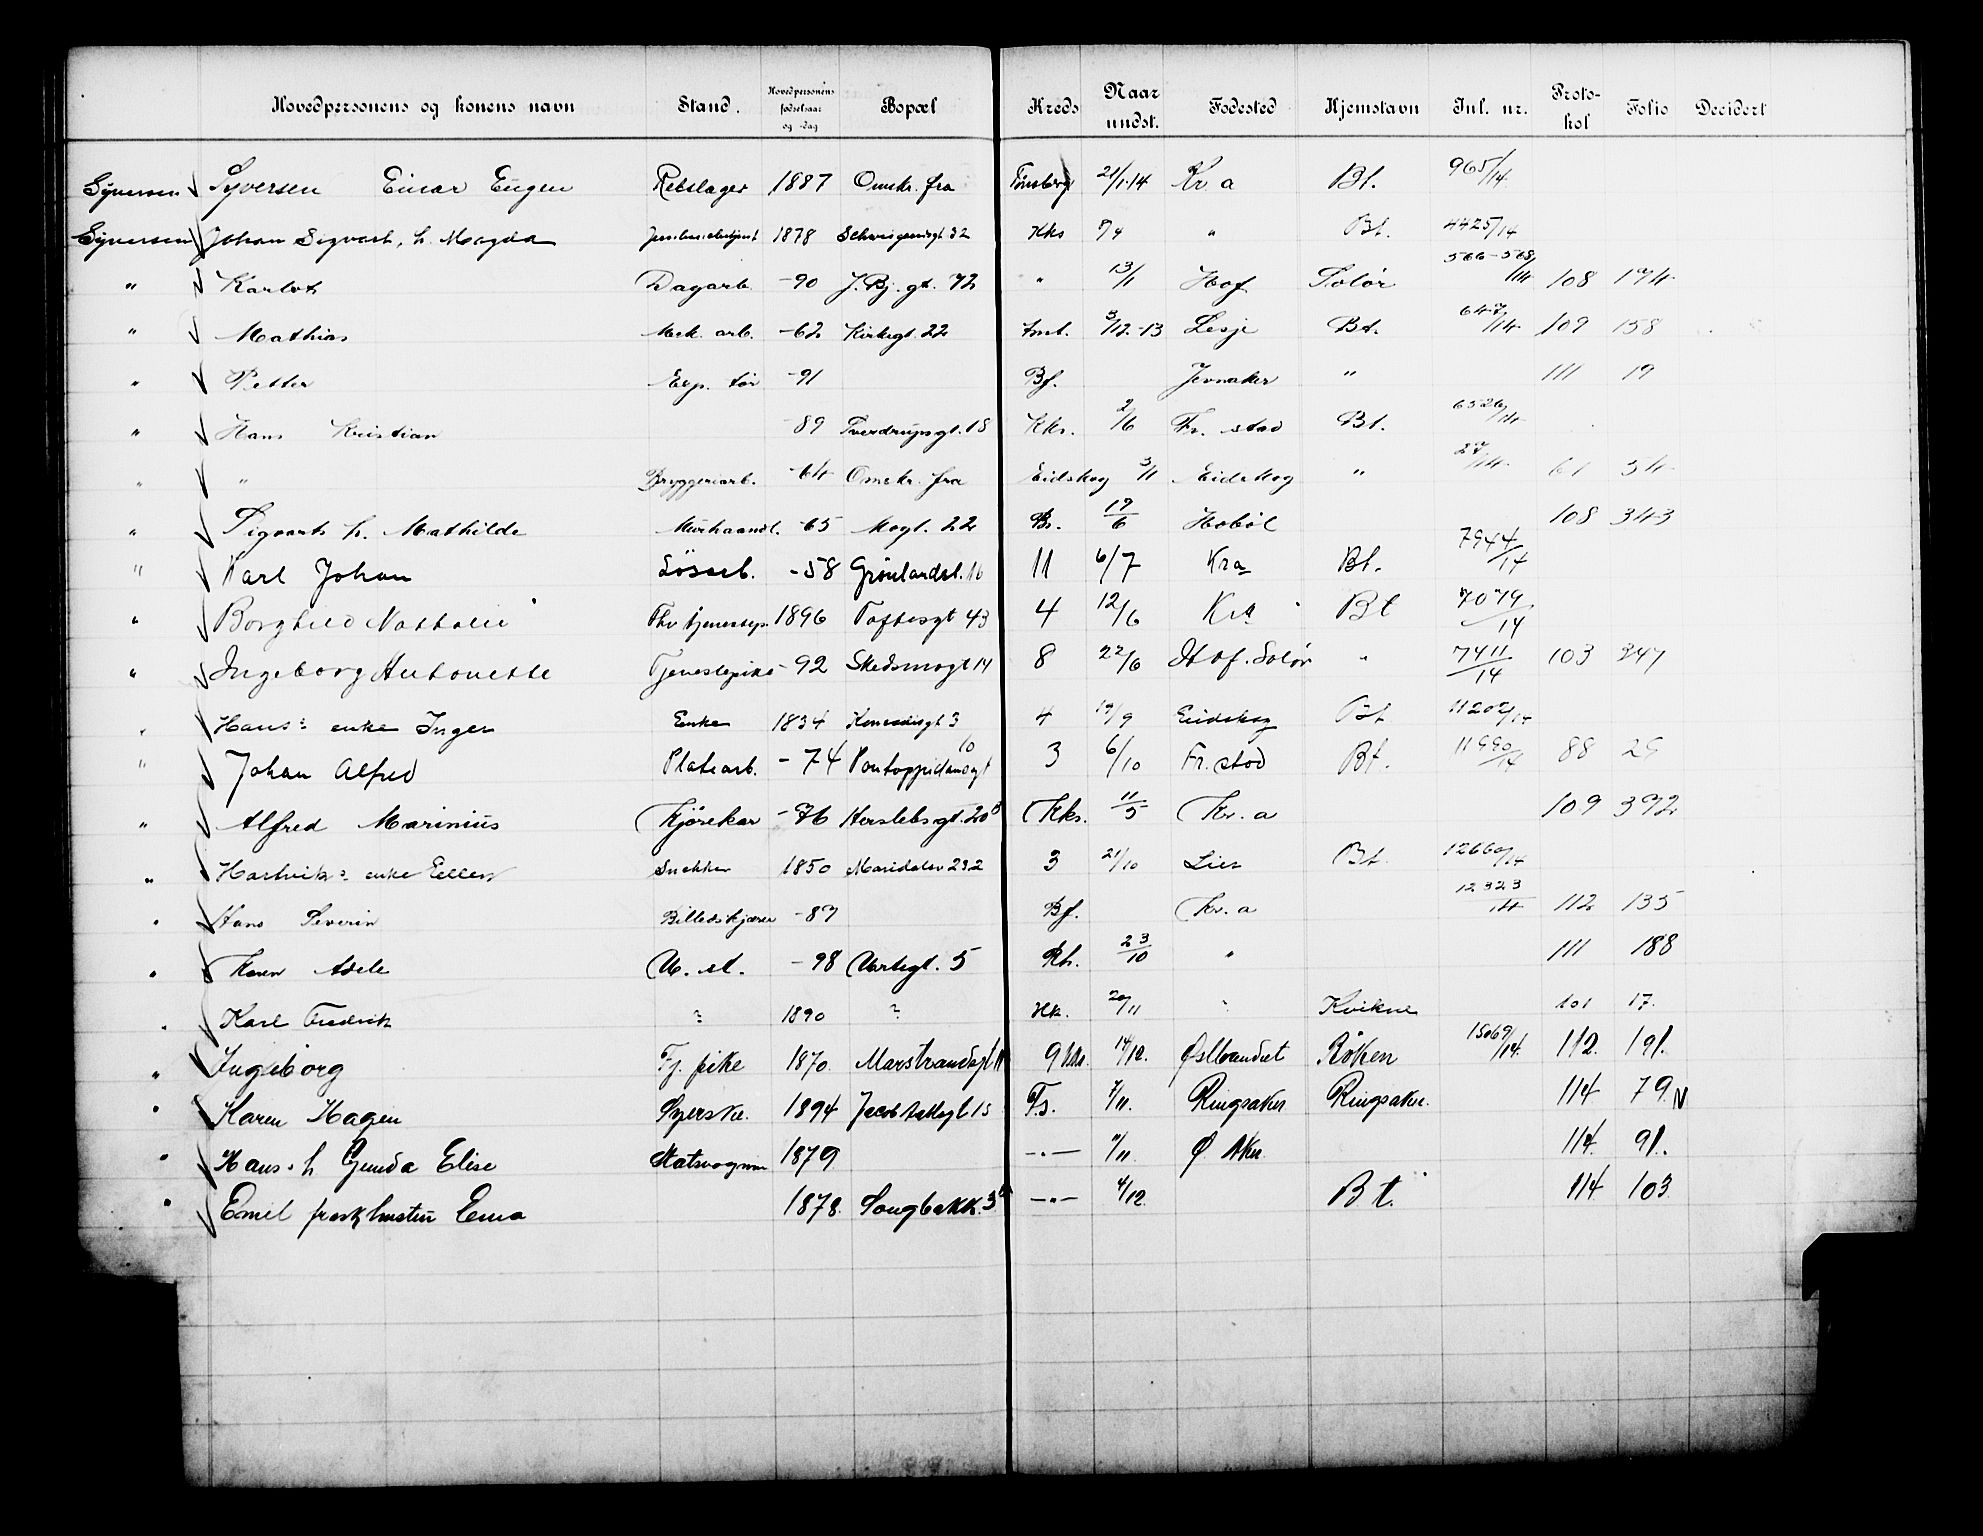 Hovedpersonens og konens navn Stand. Hovedpersonens fødselsaar og -dag Bopæl Kreds Naar undst. Fødested Hjemstavn Inl. nr. Proto-kol Folio Decidert
Syversen Syversen Einar Eugen Rebslager 1887 Omskr. fra Tønsberg 21/1-14 Kr a Bt. 965/14.
Syversen Johan Sigvart, h. Magda 1878 Schweigaardsgt 32 Kks " Bt. 4425/14
" Karlot Dagarb. -90 J. Bj. gt. 72 " 13/1 Hof Solør 566-568/14 108 174
" Mathias Mek. arb. -62 Kirkegt. 22 3/12-13 Lesje Bt. 647/14 109 158
" Petter Exp. tør -91 Bf. Jevnaker " 111 19
" Hans Kristian -89 Sverdrupsgt. 18 Kks. 2/6 Fr. stad Bt. 6526/14
" " Bryggeriarb. -64 Omskr. fra Eidskog 3/11 Eidskog " 27/14 61 54
" Sigvart h. Mathilde Murhaandl. -65 Mogt. 22 Br. 17/6 Hobøl 108 343
" Karl Johan Løsarb. -58 Grønlandsl. 16 11 6/7 Kra Bt. 7944/14
" Borghild Nathalie Fhv tjenestep. 1896 Toftesgt 43 4 12/6 Kra Bt 7079/14
" Ingeborg Antonette Tjenestepike -92 Skedsmogt 14 8 22/6 Hof. Solør " 7411/14 103 347
" Hans' enke Inger Enke 1834 3 4 19/9 Eidskog Bt 11202/14
" Johan Alfred Platearb. -74 Pontoppidansgt 10 3 6/10 Fr. stad Bt. 11990/14 88 29
" Alfred Marinius Kjørekar -76 Herslebsgt. 20 B Kks. 11/5 Kr. a 109 392
" Hartvik' enke Ellen Snekker 1850 Maridalsv 232 3 21/10 Lier Bt. 12660/14
" Hans Severin Billedskjærer -87 Bf. Kr. a 12323/14 112 135
" Karen Adele U. st. -98 Urtegt. 5 Rh. 23/10 " 111 188
" Karl Fredrik ? 1890 ? Hk. 20/11 " Kvikne 101 17.
" Ingeborg Tj. pike 1870. Marstrandsgt 11 9 Kks. 14/12. Østvandet Røken 15069/14. 112. 191.
" Karen Hagen Syerske. 1894 Jacob Aallsgt 15 Fs. 7/11. Ringsaker Ringsaker. 114 79. N
" Hans. h Gunda Elise 1879 —"— /11. Ø Aker 114. 91.
" Emil frask hustru Erna 1878. Sougbakk. 3 —"— 4/12. Bt. 114 103